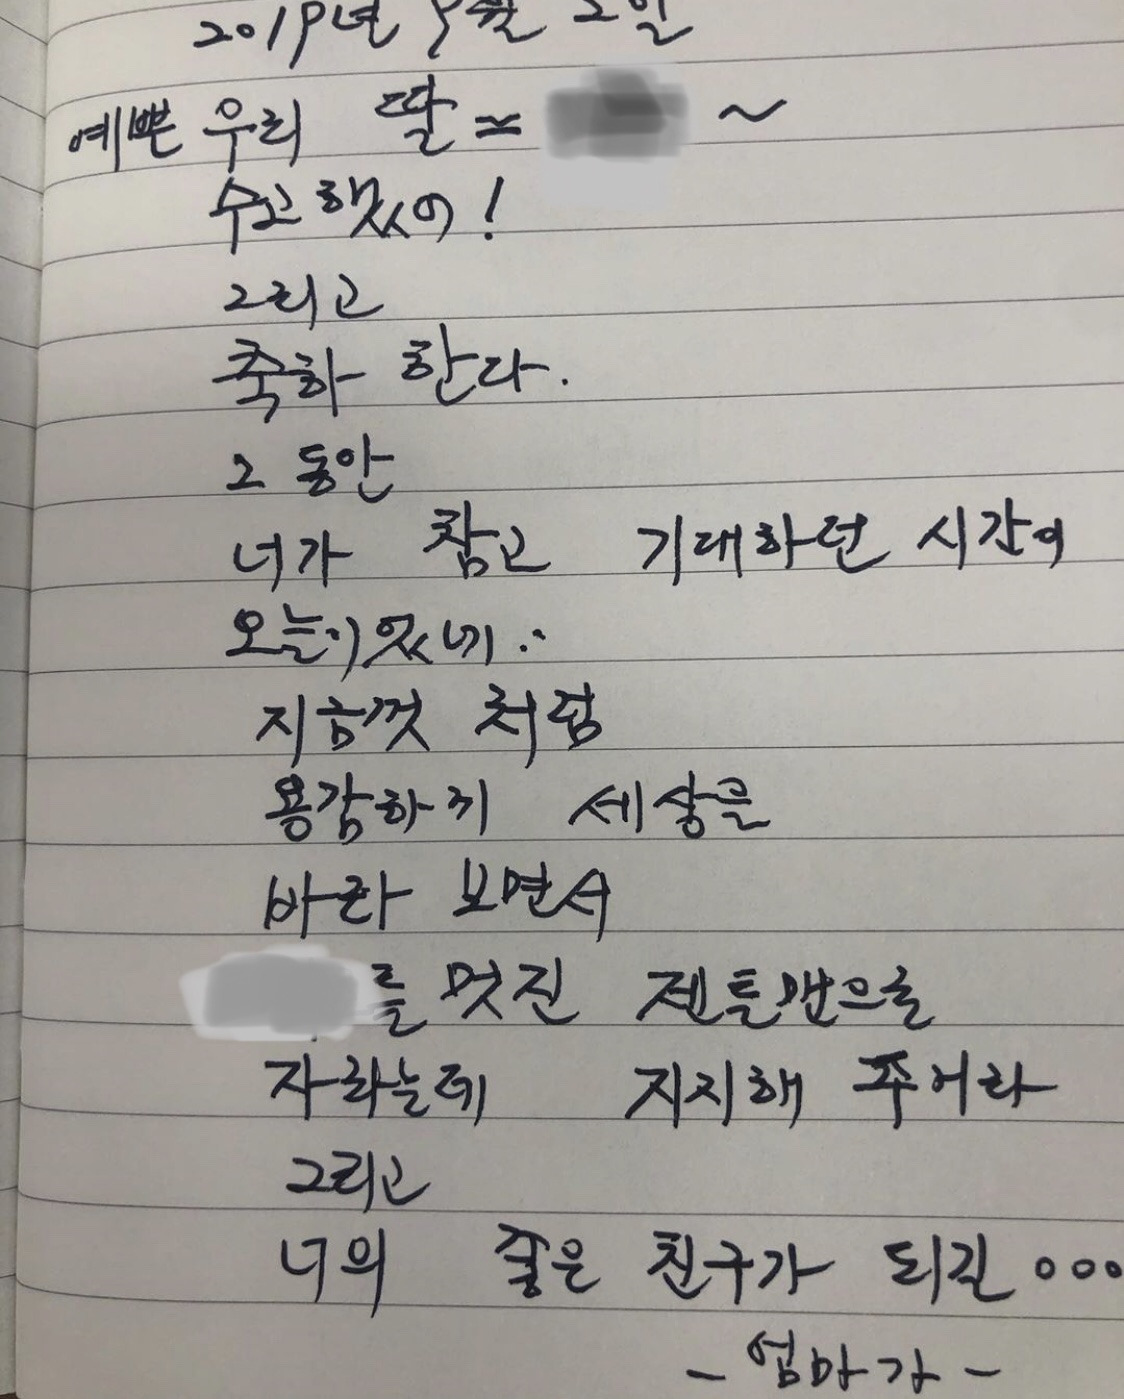 2019년 9월 2일
예쁜 우리 딸 ~ ~
수고했어!
그리고
축하 한다.
그 동안
너가 참고 기대하던 시간이
오늘이었네..
지금껏 처럼
용감하게 세상을
바라 보면서
를 멋진 젠틀맨으로
자라는데 지지해 주어라
그리고
너의 좋은 친구가 되길 ...
- 엄마가 -